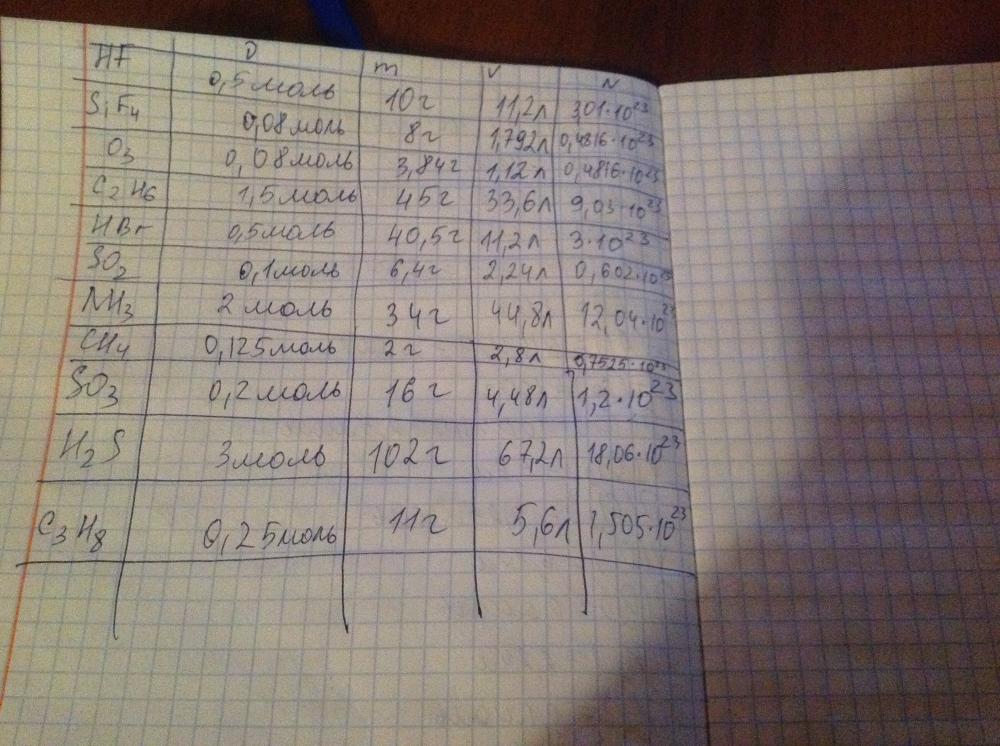 HF ν m V N
0,5 моль 10 г 11,2 л 301·10²³
SiF₄ 0,08 моль 8 г 1,792 л 0,4816·10²³
O₃ 0,08 моль 3,84 г 1,12 л 0,4816·10²³
C₂H₆ 1,5 моль 45 г 33,6 л 9,03·10²³
HBr 0,5 моль 40,5 г 11,2 л 3·10²³
SO₂ 0,1 моль 6,4 г 2,24 л 0,602·10²³
NH₃ 2 моль 34 г 44,8 л 12,04·10²³
CH₄ 0,125 моль 2 г 2,8 л 0,7525·10²³
SO₃ 0,2 моль 16 г 4,48 л 1,2·10²³
H₂S 3 моль 102 г 67,2 л 18,06·10²³
C₃H₈ 0,25 моль 11 г 5,6 л 1,505·10²³